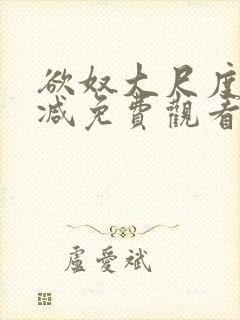 欲奴大尺度
減免費觀看
盧愛斌